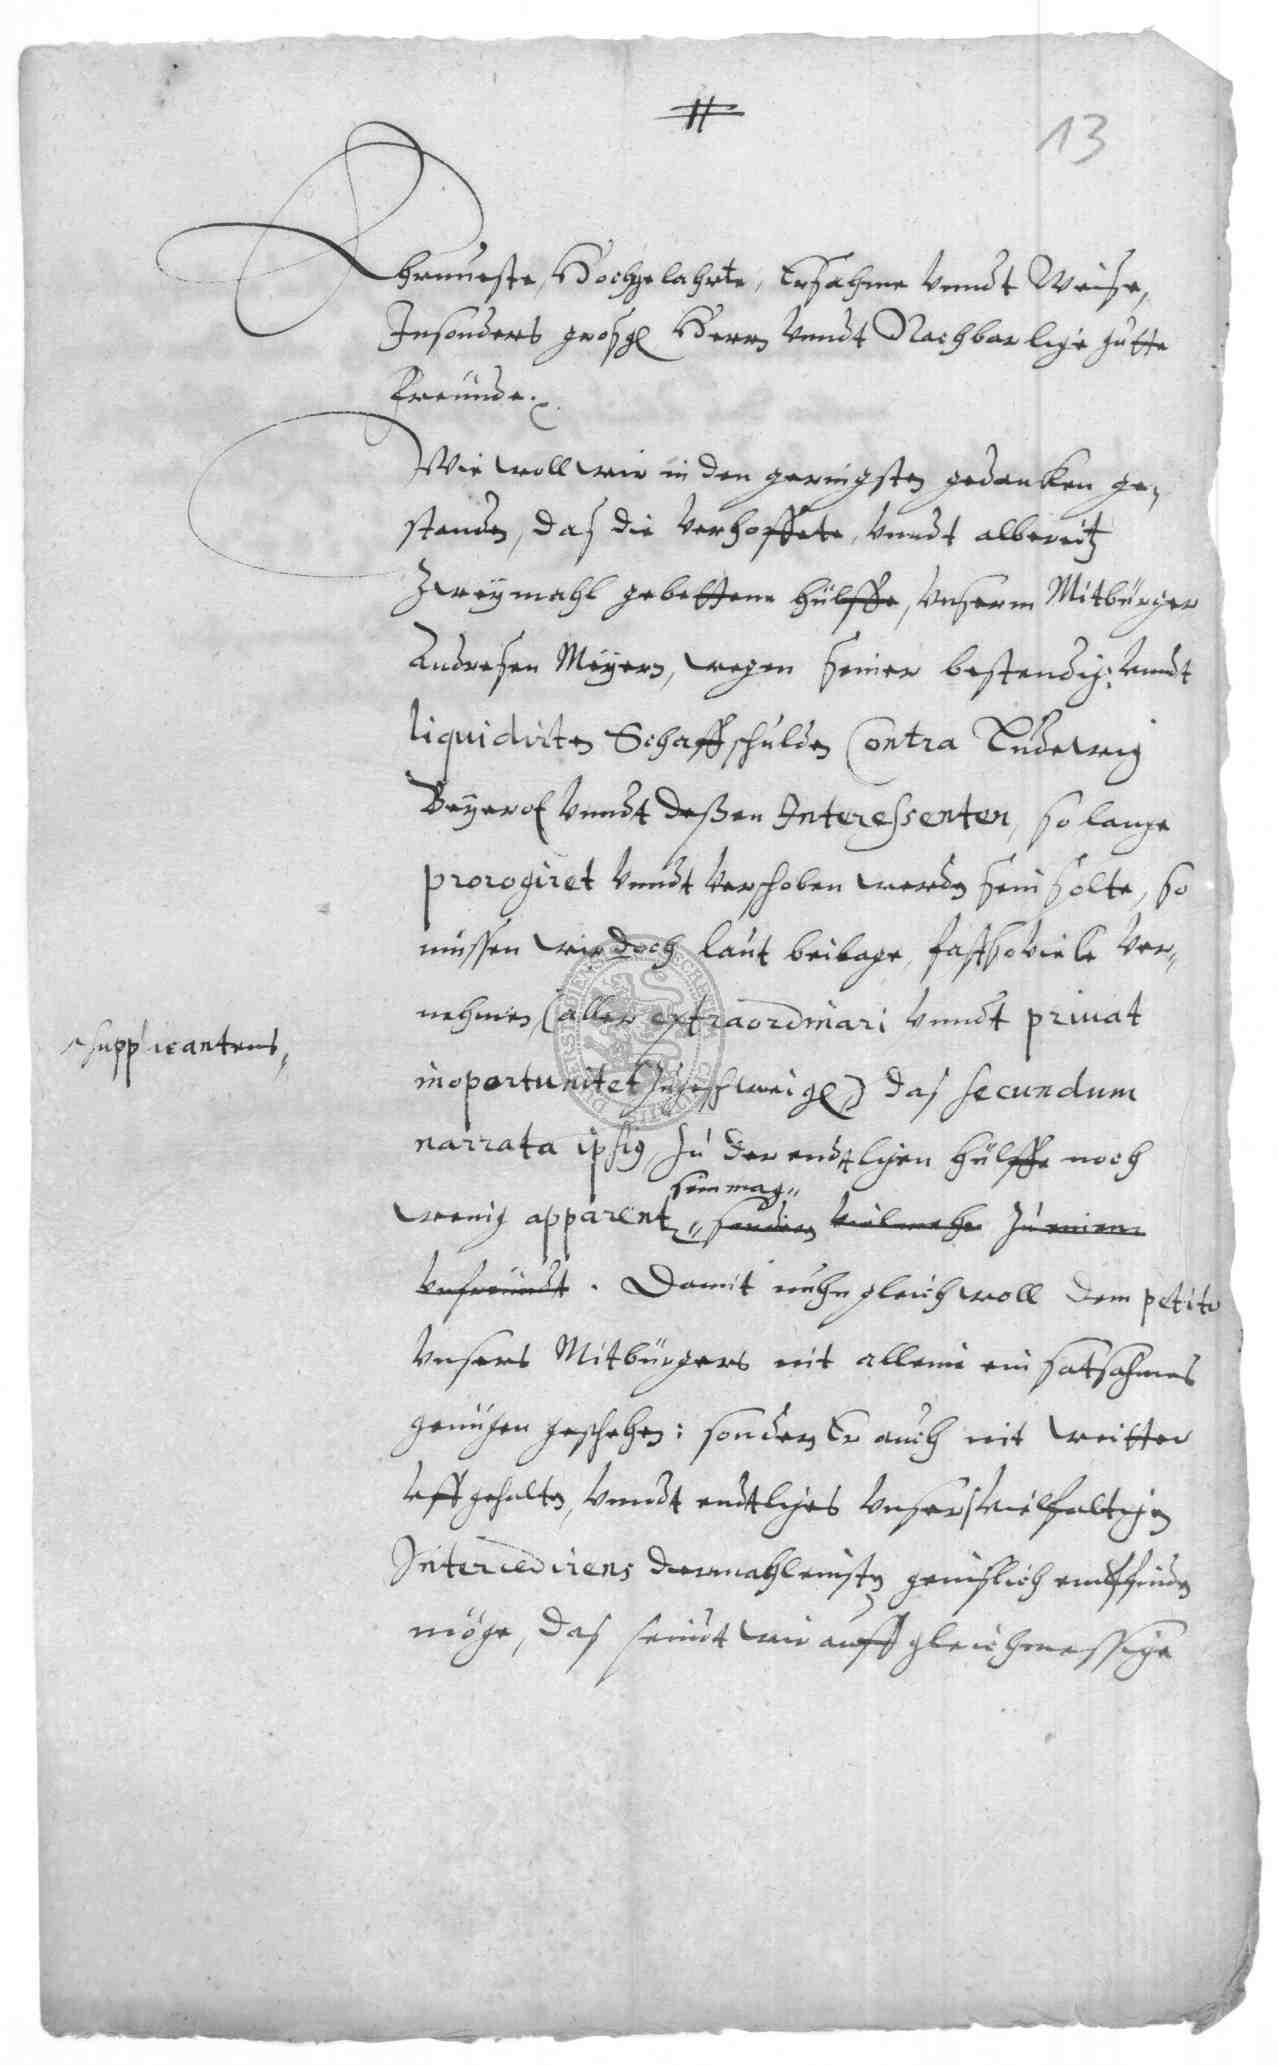 13
Ehrnueste, Hochgelahrte, Ersahme vnndt Weise,
Insonders großg. Herrn vnndt Nachbarliche gutte
Freünde.
Wie woll wir in den geringsten gedancken ge-
standen, das die verhoffete, vnndt albereitz
Zweymahl gebettene hülffe, vnserm Mitbürger
Andresen Meyern, wegen seiner bestendig: vnndt
liquidirten Schaffschulden Contra Ludewig
Beyer vnndt deßen Interessenten, so lange
prorogiret vnndt verschoben werden sein solte, so
müssen wir doch laut beilage, fast so viele ver-
nehmen, (aller extraordinari vnndt priuat
supplicantens
inoportunitet zugeschweigen) das secundum
narrata ipsius, zu der endtlichen hülffe noch
sein mag
wenig apparent, sondern vielmehr zu einem
vnfreündt. Damit nuhn gleichwoll dem petito
vnsers Mitbürgers nit alleine ein satsahmes
genügen geschehen: sondern Er auch nit weitter
vffgehalten, vnndt endtliches vnsers vielfaltigen
Intercedirens dermahleinsten genißlich empfinden
möge, das seindt wir auff gleichmessige